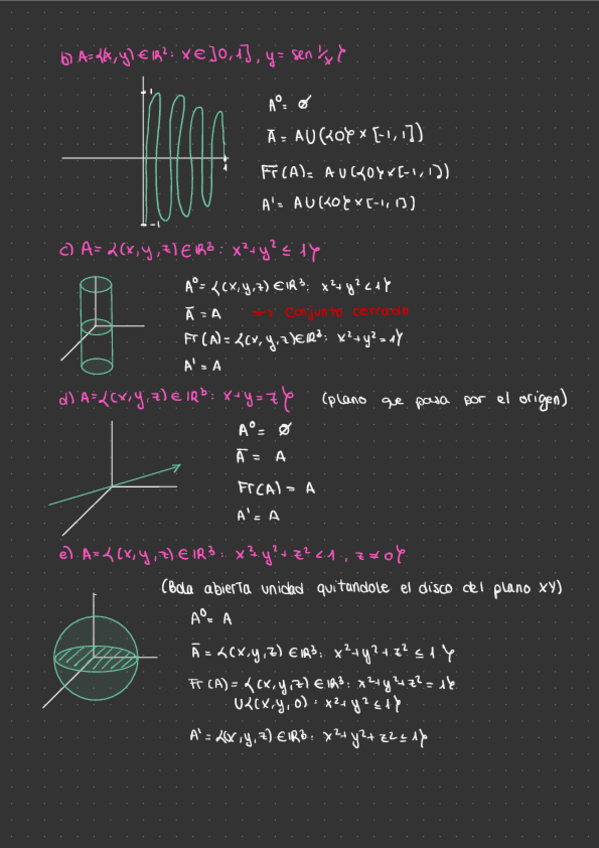 b) A={(x,y)∈ℝ²: x∈]0,1], y= sen 1/x}
1
A⁰= ∅
Ā = A∪({0}×[-1,1])
Fr(A)= A∪({0}×[-1,1])
1
A'= A∪({0}×[-1,1])
-1
c) A= {(x,y,z)∈ℝ³: x²+y² ≤ 1}
A⁰= {(x,y,z)∈ℝ³: x²+y²<1}
Ā = A → conjunto cerrado
Fr(A)={(x,y,z)∈ℝ³: x²+y²=1}
A' = A
d) A={(x,y,z)∈ℝ³: x+y=z} (plano que pasa por el origen)
A⁰= ∅
Ā = A
Fr(A) = A
A' = A
e) A={(x,y,z)∈ℝ³: x²+y²+z²<1, z≠0}
(Bola abierta unidad quitandole el disco del plano XY)
A⁰= A
Ā = {(x,y,z)∈ℝ³: x²+y²+z² ≤ 1}
Fr(A)= {(x,y,z)∈ℝ³: x²+y²+z²=1}
∪{(x,y,0): x²+y²≤1}
A'= {(x,y,z)∈ℝ³: x²+y²+z²≤1}